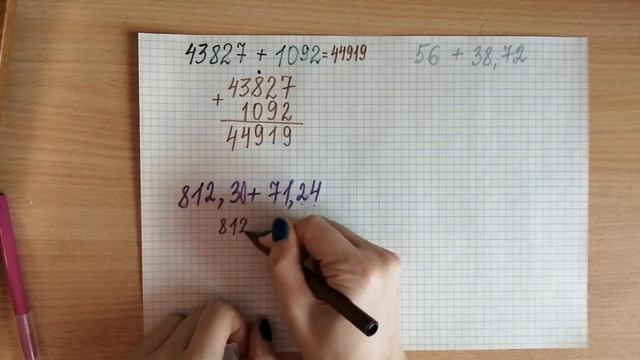 43827 + 1092 = 44919
56 + 38,72
43827
+
1092
44919
812,30 + 71,24
812